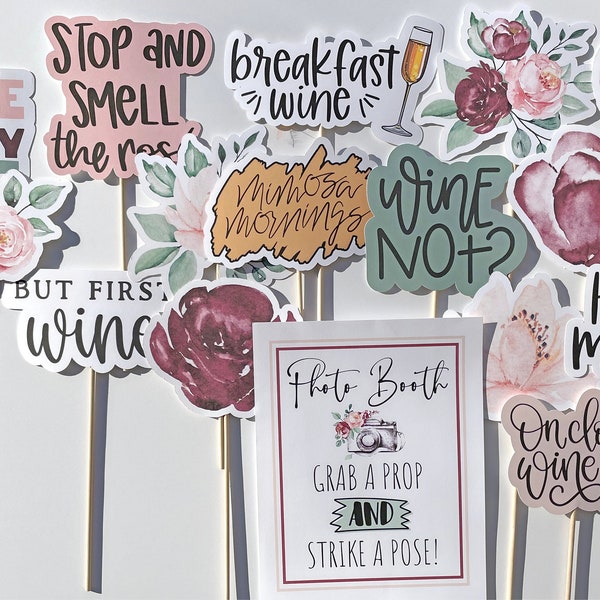 STOP AND
SMELL
the
breakfast
wine
mimosa
mornings
wine
NOT?
BUT FIRST
wine
Photo Booth
GRAB A PROP
AND
STRIKE A POSE!
wine